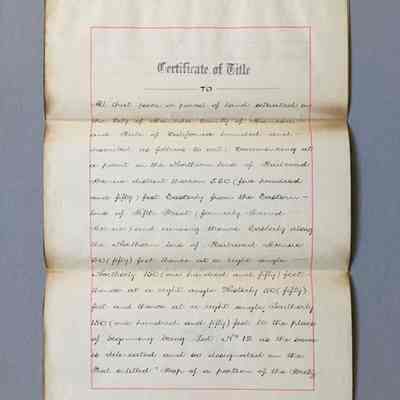 Certificate of Title
TO
All that piece or parcel of land situated in
the City of County of
and State of California bounded and
described as follows to wit: Commencing at
a point in the Northern line of Railroad
Avenue distant thereon 550 (five hundred
and fifty) feet Easterly from the Eastern
line of Fifth Street (formerly
and running thence Easterly along
the Northern line of Railroad Avenue
50 (fifty) feet thence at a right angle
Northerly 150 (one hundred and fifty) feet
thence at a right angle Westerly 50 (fifty)
feet and thence at a right angle Southerly
150 (one hundred and fifty) feet to the place
of beginning being Lot No 12 as the same
is delineated and so designated on the
Map of a portion of the